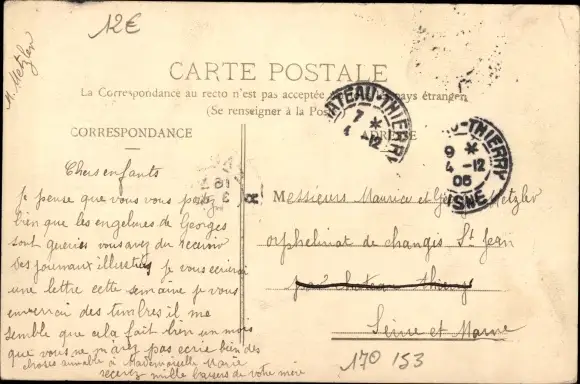 12€
M. Metzler
CARTE POSTALE
La Correspondance au recto n'est pas acceptée pays étrangers
(Se renseigner à la Poste
CORRESPONDANCE
ADRESSE
CHATEAU-THIERRY
7 *
4 -12
U-THIERRY
9 *
4 -12
05
AISNE
Chers enfants
Je pense que vous vous portez
bien que les engelures de Georges
sont gueries vous avez du recevoir
des journaux illustrés je vous ecrirai
une lettre cette semaine je vous
enverrai des timbres il me
semble que cela fait bien un mois
que vous ne m'avez pas ecrit bien des
choses aimable à Mademoiselle Marie
recevez mille baisers de votre mère
Messieurs Maurice et Georges Metzler
orphelinat de changis St Jean
par chateau thierry
Seine et Marne
170 153